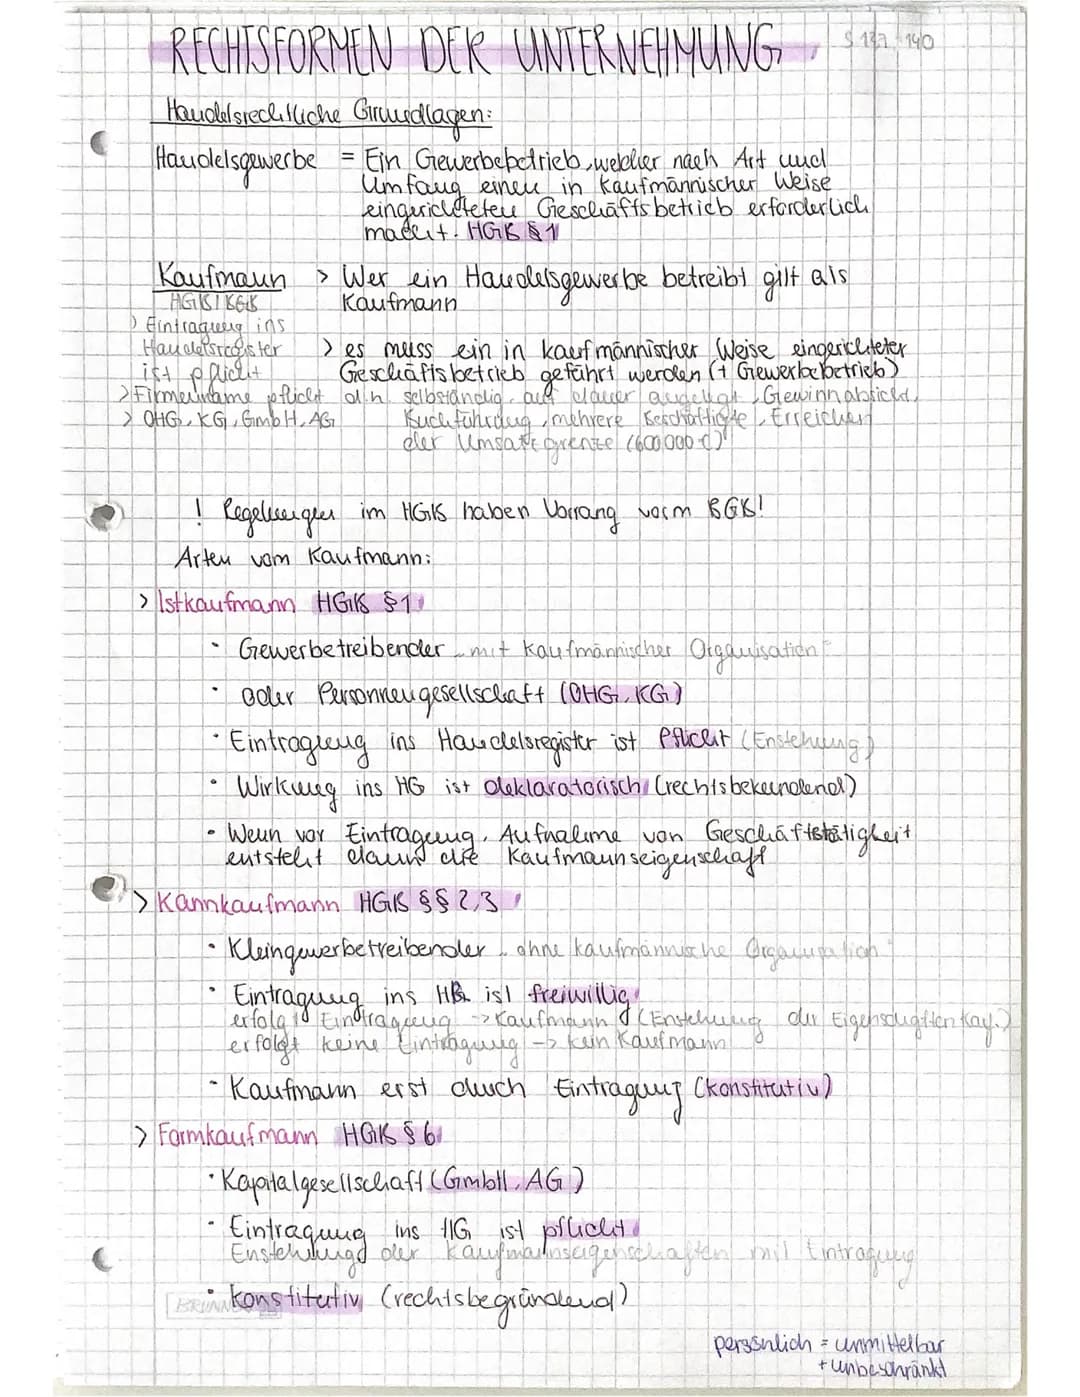 RECHTSFORMEN DER UNTERNEHMUNG S 137 - 140
Handelsrechtliche Grundlagen:
Handelsgewerbe = Ein Gewerbebetrieb, welcher nach Art und
Umfang einen in kaufmännischer Weise
eingerichteten Geschäftsbetrieb erforderlich
macht. HGB §1
Kaufmann > Wer ein Handelsgewerbe betreibt gilt als
HGB / BGB Kaufmann
> Eintragung ins
Handelsregister > es muss ein in kaufmännischer Weise eingerichteter
ist pflicht Geschäftsbetrieb geführt werden (+ Gewerbebetrieb)
> Firmenname pflicht d.h. selbständig, auf dauer angelegt, Gewinnabsicht,
> OHG, KG, GmbH, AG Buchführung, mehrere Beschäftigte, Erreichen
der Umsatzgrenze (600 000 €)
! Regelungen im HGB haben Vorrang vorm BGB!
Arten vom Kaufmann:
> Istkaufmann HGB §1
· Gewerbetreibender „mit kaufmännischer Organisation"
· oder Personnengesellschaft (OHG, KG)
· Eintragung ins Handelsregister ist Pflicht (Enstehung)
· Wirkung ins HG ist deklaratorisch (rechtsbekundend)
· Wenn vor Eintragung, Aufnahme von Geschäftstätigkeit
entsteht dann die Kaufmannseigenschaft
> Kannkaufmann HGB §§ 2,3
· Kleingewerbetreibender „ohne kaufmännische Organisation"
· Eintragung ins HR ist freiwillig
erfolgt Eintragung -> Kaufmann (Enstehung der Eigenschaften Kay.)
erfolgt keine Eintragung -> kein Kaufmann
· Kaufmann erst duch Eintragung (konstitutiv)
> Formkaufmann HGB § 6
· Kapitalgesellschaft (GmbH, AG)
· Eintragung ins HG ist pflicht
Enstehung der Kaufmannseigenschaften mit Eintragung
· konstitutiv (rechtsbegründend)
BRUNN
persönlich = unmittelbar
+ unbeschränkt